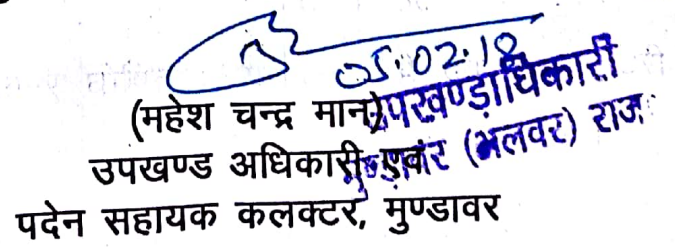 05.02.18
(महेश चन्द्र मान)
उपखण्ड अधिकारी एवं
पदेन सहायक कलक्टर, मुण्डावर
उपखण्डाधिकारी
मुण्डावर (अलवर) राज.